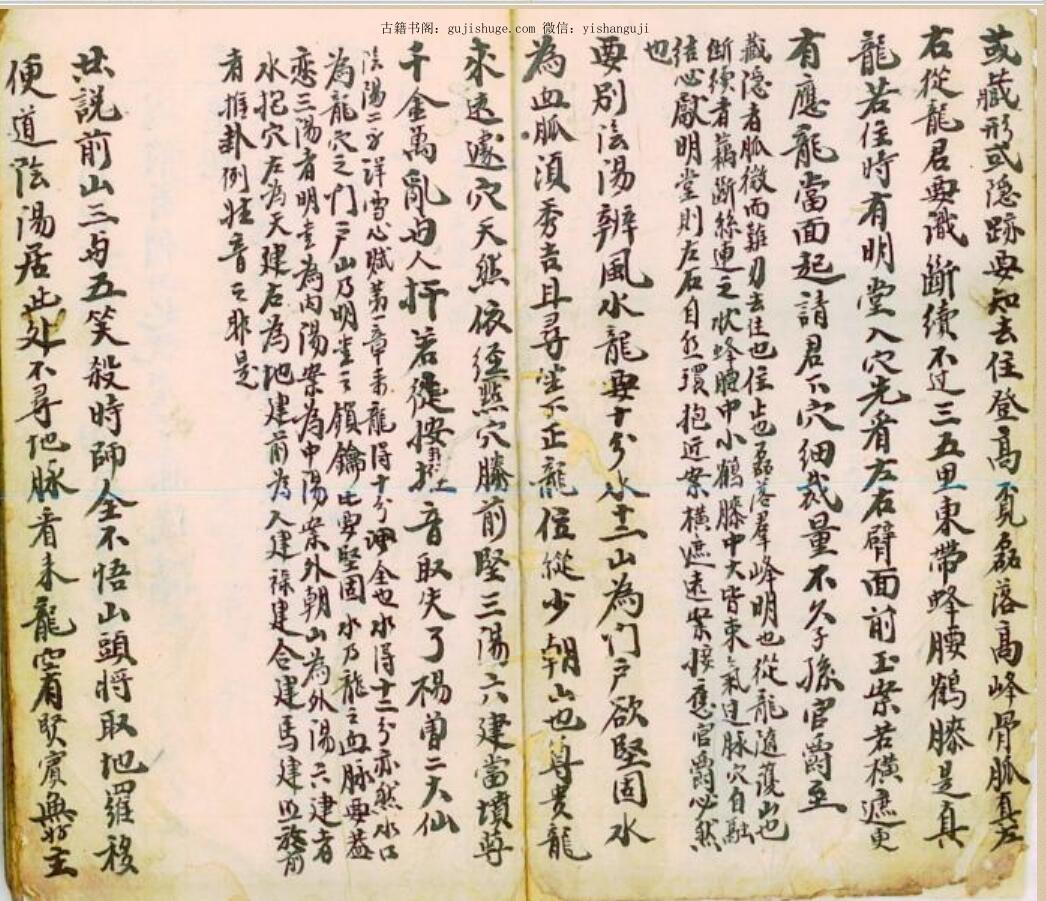 古籍书阁：gujishuge.com 微信：yishanguji
或藏形或隐跡要知去住登高覓磊落高峰骨脉真左
右從龍君要識斷續不过三五里束帶蜂腰鶴膝是真
龍若住時有明堂入穴先看左右臂面前玉案若横遮更
有應龍當面起請君下穴细裁量不久子孫官爵至
藏隐者脉微而難刃去住也住止也磊落羣峰明也從龍隨護山也
斷續者藕斷絲連之状蜂腰中小鶴膝中大皆束氣过脉穴自融
结必献明堂則左右自然環抱近案横遮遠案接應官爵必然
也
要别阴湯辨風水龍要十分水十二山為门户欲堅固水
為血脉須秀吉且尋坐下正龍位縱少朝山也尊贵龍
来遠遠穴天然依徑點穴勝前堅三湯六建當墳尊
千金萬亂与人扞若徒按音取失了楊曾二大仙
阴湯二字詳雪心赋第一章来龍得十分全也水得十二分亦然水口
為龍穴之門户山乃明堂之鎖鑰此要堅固水乃龍之血脉要益
恋三湯者明堂為内湯案為中湯案外朝山為外湯六建者
水抱穴左為天建右為地建前為人建禄建合建馬建
者推卦例非音之非是
世説前山三与五笑殺時師全不悟山頭将取地羅移
便道阴湯居此处不尋地脉看来龍賓主